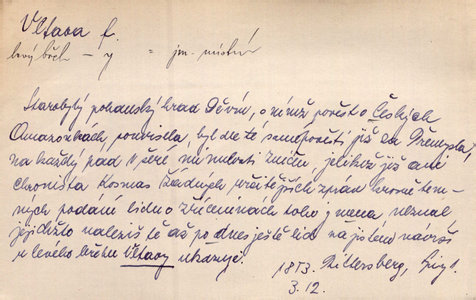 Vltava f.
levý břeh – y = jm. místní
Starobylý pohanský hrad Děvín, o němž pověst o Českých
Amazonkách pouvisela, byl dle té samé pověsti již za Přemysla,
na každý pad v šeré minulosti zničen, jelikož již ani
chronista Kosmas žádných určitějších zpráv kromě tem-
ných podání lidu o zříceninách toho jmena neznal
jejichžto naleziště až po dnes ještě lid na jisté návrší
u levého břehu Vltavy ukazuje.
1853. Rittersberg,
3.12.